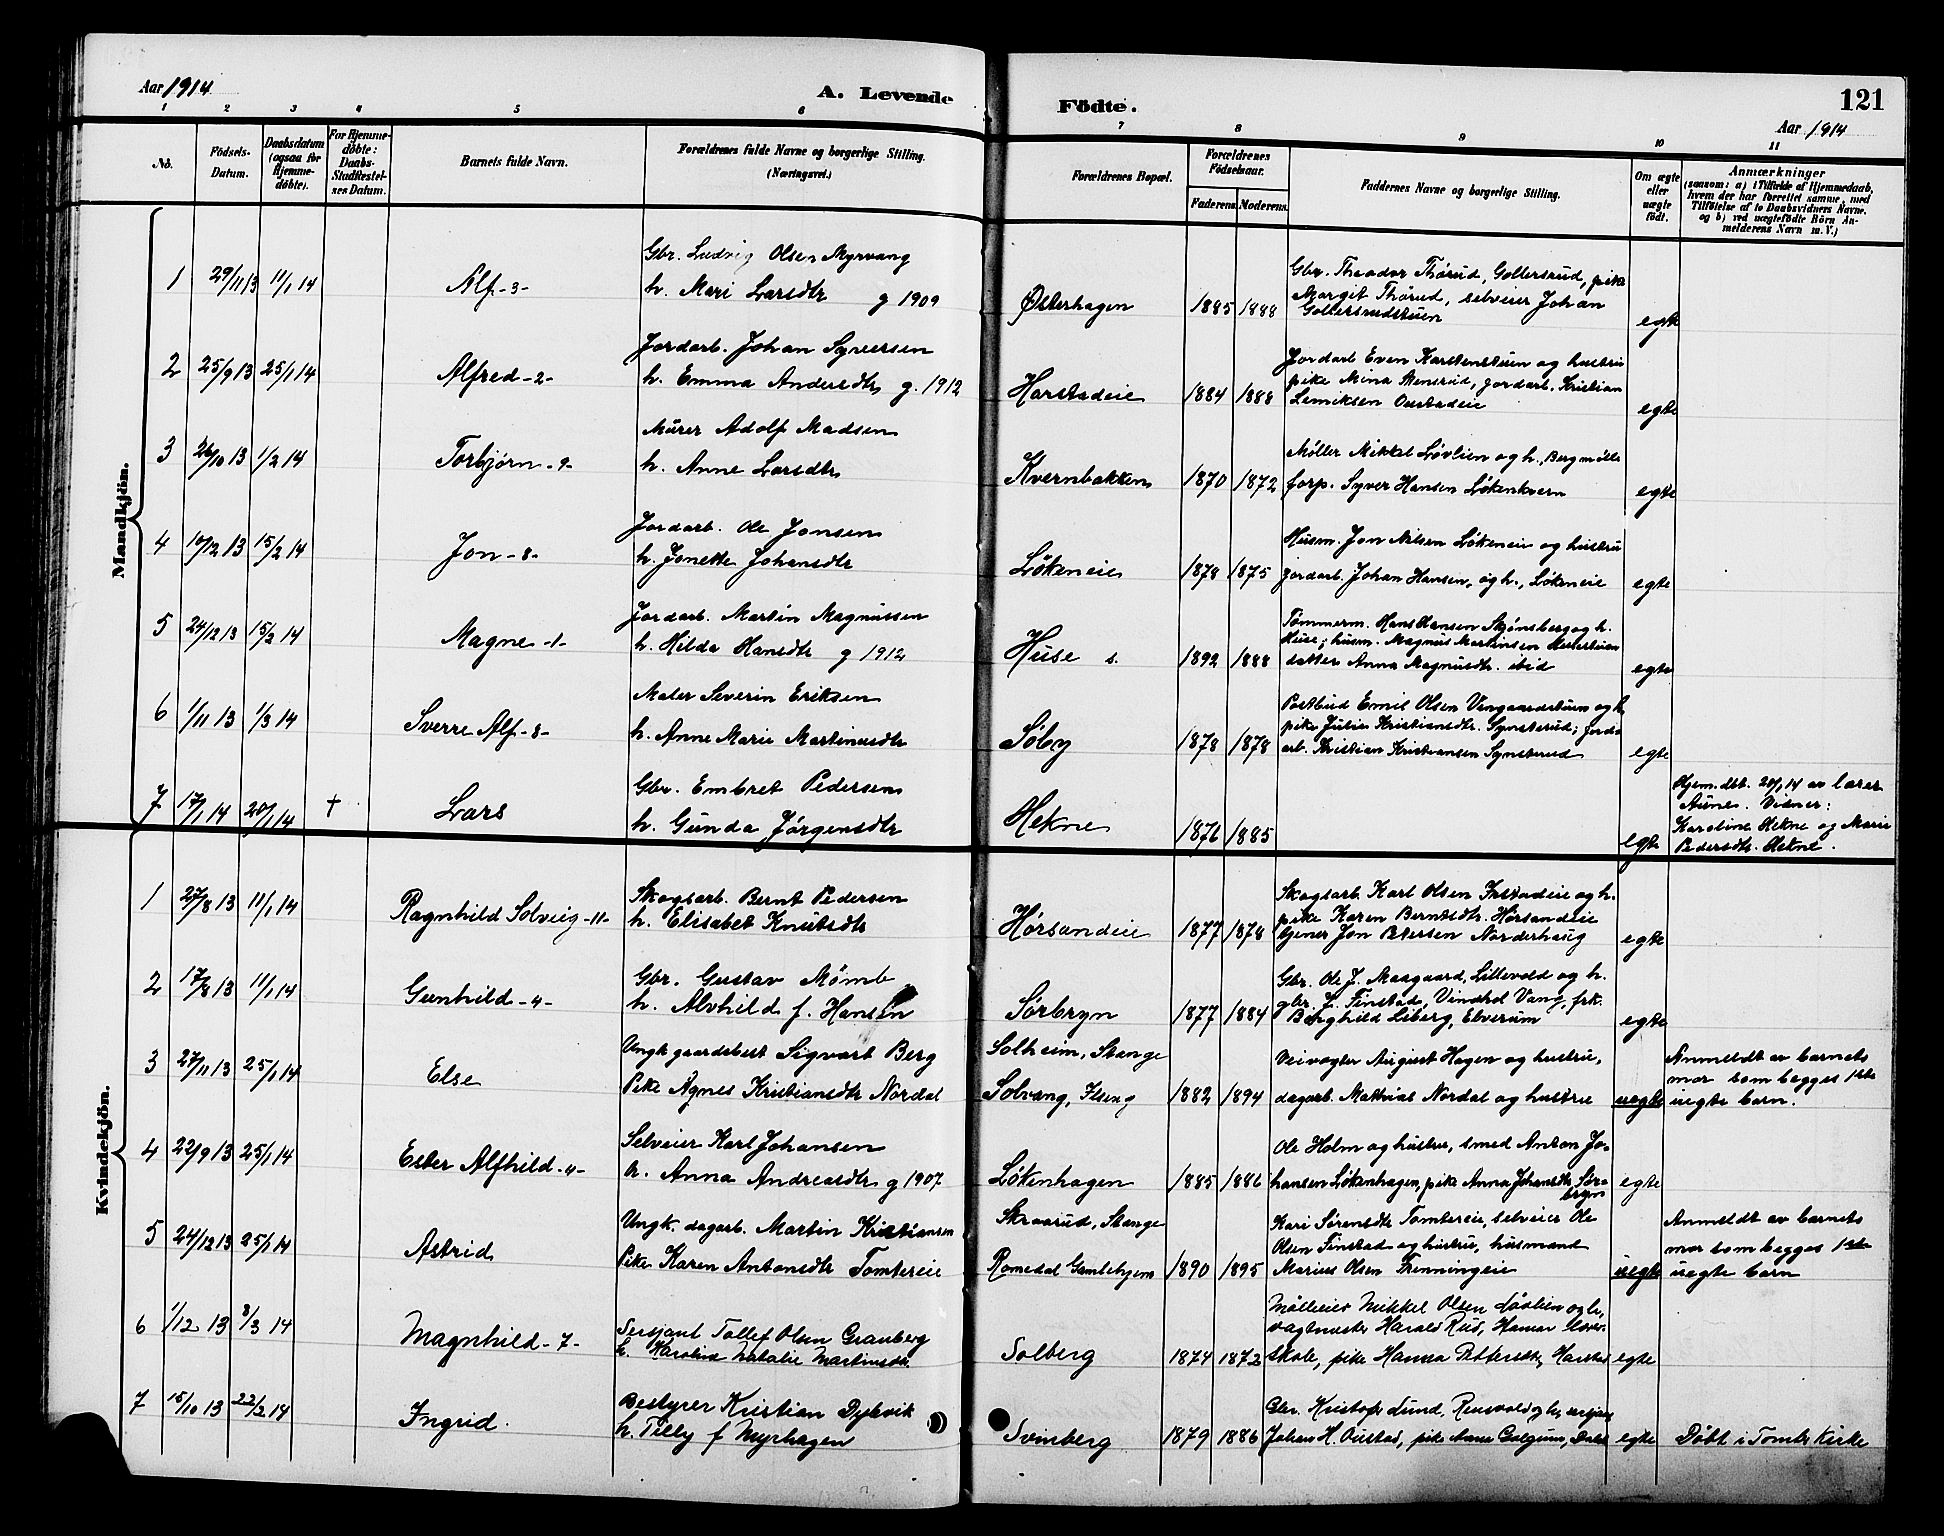 Aar 1914
A. Levende Födte.
121
Aar 1914
1 2 3 4 5 6 7 8 9 10 11
No.
Födsels-Datum.
Daabsdatum (ogsaa for Hjemme-døbte).
For Hjemme-døbte: Daabs-Stadfæstel-ses Datum.
Barnets fulde Navn.
Forældrenes fulde Navne og borgerlige Stilling. (Næringsvei.)
Forældrenes Bopæl.
Forældrenes Födselsaar.
Faderens. Moderens.
Faddernes Navne og borgerlige Stilling.
Om ægte eller uægte født.
Anmærkninger
(saasom: a) i Tilfælde af Hjemmedaab,
hvem der har forrettet samme, med
Tilføielse af to Daabsvidners Navne,
og b) ved uægtefødte Börn An-
melderens Navn m. V.)
Mandkjön.
1 29/11 13 11/1 14 Alf -3-
Gbr. Ludvig Olsen Myrvang
h. Mari Larsdtr g 1909
Østerhagen 1885 1888
Gbr. Theodor Thørud, Gollersrud, pike
Margit Thørud, selveier Johan
Gollersrudstuen
egte
2 25/9 13 25/1 14 Alfred -2-
Jordarb. Johan Syversen
h. Emma Andersdtr g. 1912
Harstadeie 1884 1888
Jordarb Even Karstenstuen og hustru
pike Mina Stensrud, jordarb. Kristian
Lemiksen Oustadeie
egte
3 26/10 13 1/2 14 Torbjørn -9-
Murer Adolf Madsen
h. Anne Larsdtr
Kvernbakken 1870 1872
Møller Mikkel Løvlien og h., Berg mølle
forp. Syver Hansen Løkenkvern
egte
4 10/12 13 15/2 14 Jon -8-
Jordarb. Ole Jonsen
h. Jonette Johansdtr
Løkeneie 1878 1875
Husm. Jon Nilsen Løkeneie og hustru
jordarb. Johan Hansen, og h., Løkeneie
egte
5 24/12 13 15/2 14 Magne -1-
Jordarb. Martin Magnussen
h. Hilda Hansdtr g 1912
Huse s. 1892 1888
Tømmerm. Hans Hansen Skjønsberg og h.
Huse; husm. Magnus Martinsen Husestuen
datter Anna Magnusdtr. ibid
egte
6 1/11 13 1/3 14 Sverre Alf -8-
Maler Severin Eriksen
h. Anne Marie Martinusdtr
Søby 1878 1878
Postbud Emil Olsen Vengaardstuen og h
pike Julie Kristiansdtr. Synsterud; jord-
arb. Kristian Kristiansen Synsterud
egte
7 17/1 14 20/1 14 † Lars
Gbr. Embret Pedersen
h. Gunda Jørgensdtr
Hekne 1876 1885
egte
Hjem.dbt. 20/1 14 av lærer
Aune. Vidner:
Karoline Hekne og Marie
Pedersdtr. Hekne.
Kvindekjön.
1 27/8 13 11/1 14 Ragnhild Solveig -11-
Skogsarb. Bernt Pedersen
h. Elisabet Knutsdtr
Hørsandeie 1877 1878
Skogsarb. Karl Olsen Instadeie og h.
pike Karen Berntsdtr. Hørsandeie
tjener Jon Petersen Norderhaug
egte
2 17/8 13 11/1 14 Gunhild -4-
Gbr. Gustav Mømb
h. Alvhild f. Hansen
Sørbryn 1877 1884
Gbr. Ole J. Maagaard, Lillevold og h.
gbr. L. Finstad, Vindhol Vang, frk.
Borghild Liberg, Elverum
egte
3 27/11 13 25/1 14 Else
Ungk gaardsbest Sigvart Berg
Pike Agnes Kristiansdtr Nordal
Solheim, Stange
Solvang, Ilseng 1882 1894
Veivogter August Hagen og hustru,
dagarb. Mathias Nordal og hustru
uegte
Anmeldt av barnets
mor som begges 1ste
uegte barn.
4 22/9 13 25/1 14 Ester Alfhild -4-
Selveier Karl Johansen
h. Anna Andreasdtr g 1907
Løkenhagen 1885 1886
Ole Holm og hustru, smed Anton Jo-
hansen Løkenhagen, pike Anna Johansdtr, Sør-
bryn
egte
5 24/12 13 25/1 14 Astrid
Ungk. dagarb. Martin Kristiansen
Pike Karen Antonsdtr Tomtereie
Skraarud, Stange
Romedal Gamlehjem 1890 1895
Kari Sørensdtr Tomtereie, selveier Ole
Olsen Finstad og hustru, husmand
Marius Olsen Frenningeie
uegte
Anmeldt av barnets
mor som begges 1ste
uegte barn
6 1/12 13 8/3 14 Magnhild -7-
Sersjant Tollef Olsen Granberg
h. Karoline Natalie Martinsdtr
Solberg 1874 1872
Mølleeier Mikkel Olsen Løvlien og h,
vagtmester Harald Rud, Hamar
skole, pike Hanna Pettersdtr, Harstad
egte
7 15/10 13 22/2 14 Ingrid.
Bestyrer Kristian Dykvik
h. Tilly f Myrhagen
Svinberg 1879 1886
Gbr. Kristofer Lund, og h,
Johan H. Oustad, pike
egte
Døbt i Tomter Kirke